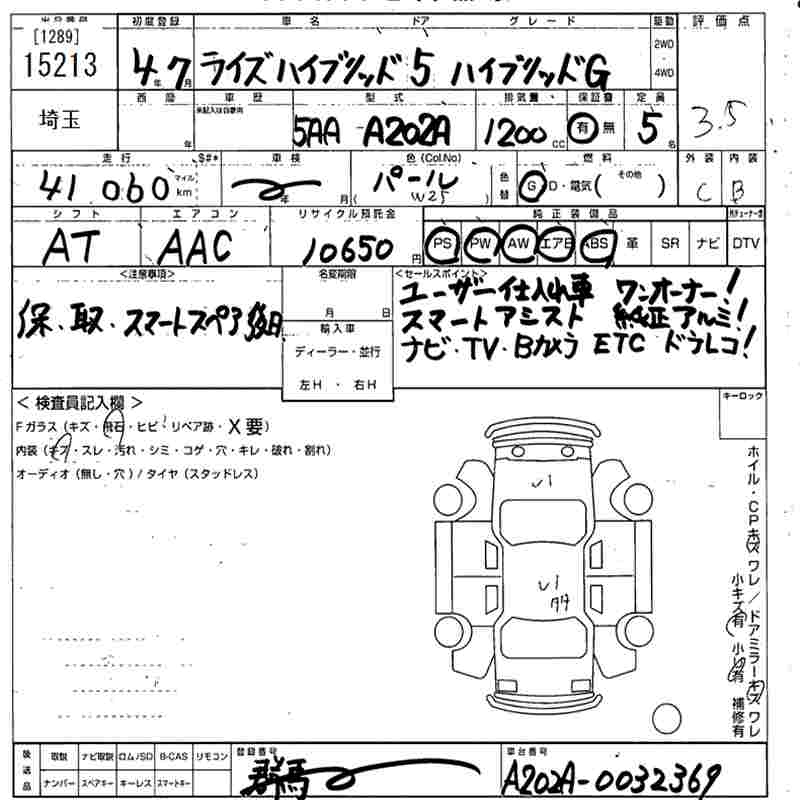 [1289]
15213
埼玉
初度登録 車名 ドア グレード 駆動 評価点
4年7月 ライズハイブリッド 5 ハイブリッドG 2WD・4WD
西暦 年 車歴 型式 排気量 保証書 定員
5AA A202A 1200cc 有 無 5名 3.5
走行 $#* 車検 色(Col.No) 燃料 外装 内装
41,060 マイル km 年 月 パール (W25) 色替 G・D・電気( その他 ) C B
シフト エアコン リサイクル預託金 純正装備品
AT AAC 10650円 PS PW AW エアB ABS 革 SR ナビ DTV
<注意事項> 名変期限 <セールスポイント>
月 日
保、取、スマートスペア後日
輸入車
ディーラー・並行
左H ・ 右H
ユーザー仕入れ車 ワンオーナー!
スマートアシスト 純正アルミ!
ナビ・TV・Bカメラ ETC ドラレコ!
キーロック
＜ 検査員記入欄 ＞
Fガラス (キズ・飛石・ヒビ・リペア跡・X要)
内装 (キズ・スレ・汚れ・シミ・コゲ・穴・キレ・破れ・割れ)
オーディオ (無し・穴) / タイヤ (スタッドレス)
ホイル・CPキズ ワレ / ドアミラーキズ ワレ
小キズ有 小凹有 補修有
後送品 取説 ナビ取説 ロム/SD B-CAS リモコン
ナンバー スペアキー キーレス スマートキー
登録番号 群馬
車台番号 A202A-0032369